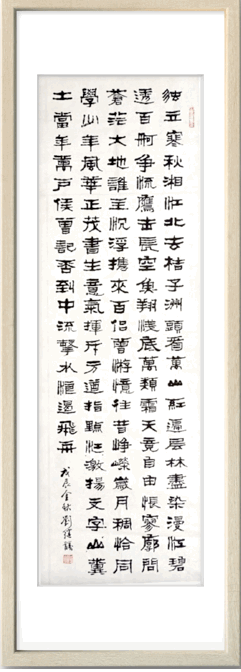 独立寒秋湘江北去桔子洲頭看萬山紅遍层林盡染漫江碧
透百舸争流鷹击長空魚翔浅底萬類霜天竞自由悵寥廓問
蒼茫大地誰主沉浮攜來百侣曾游憶往昔峥嶸歲月稠恰同
學少年風華正茂書生意氣揮斥方遒指點江激揚文字山糞
土當年萬户侯曾記否到中流擊水浪遏飛舟
戊辰金秋劉